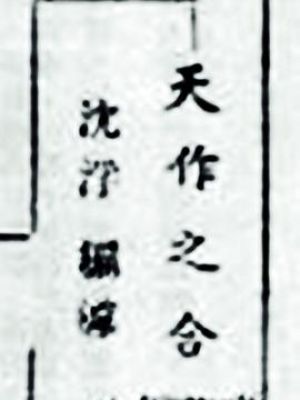 天作之合
沈浮編導